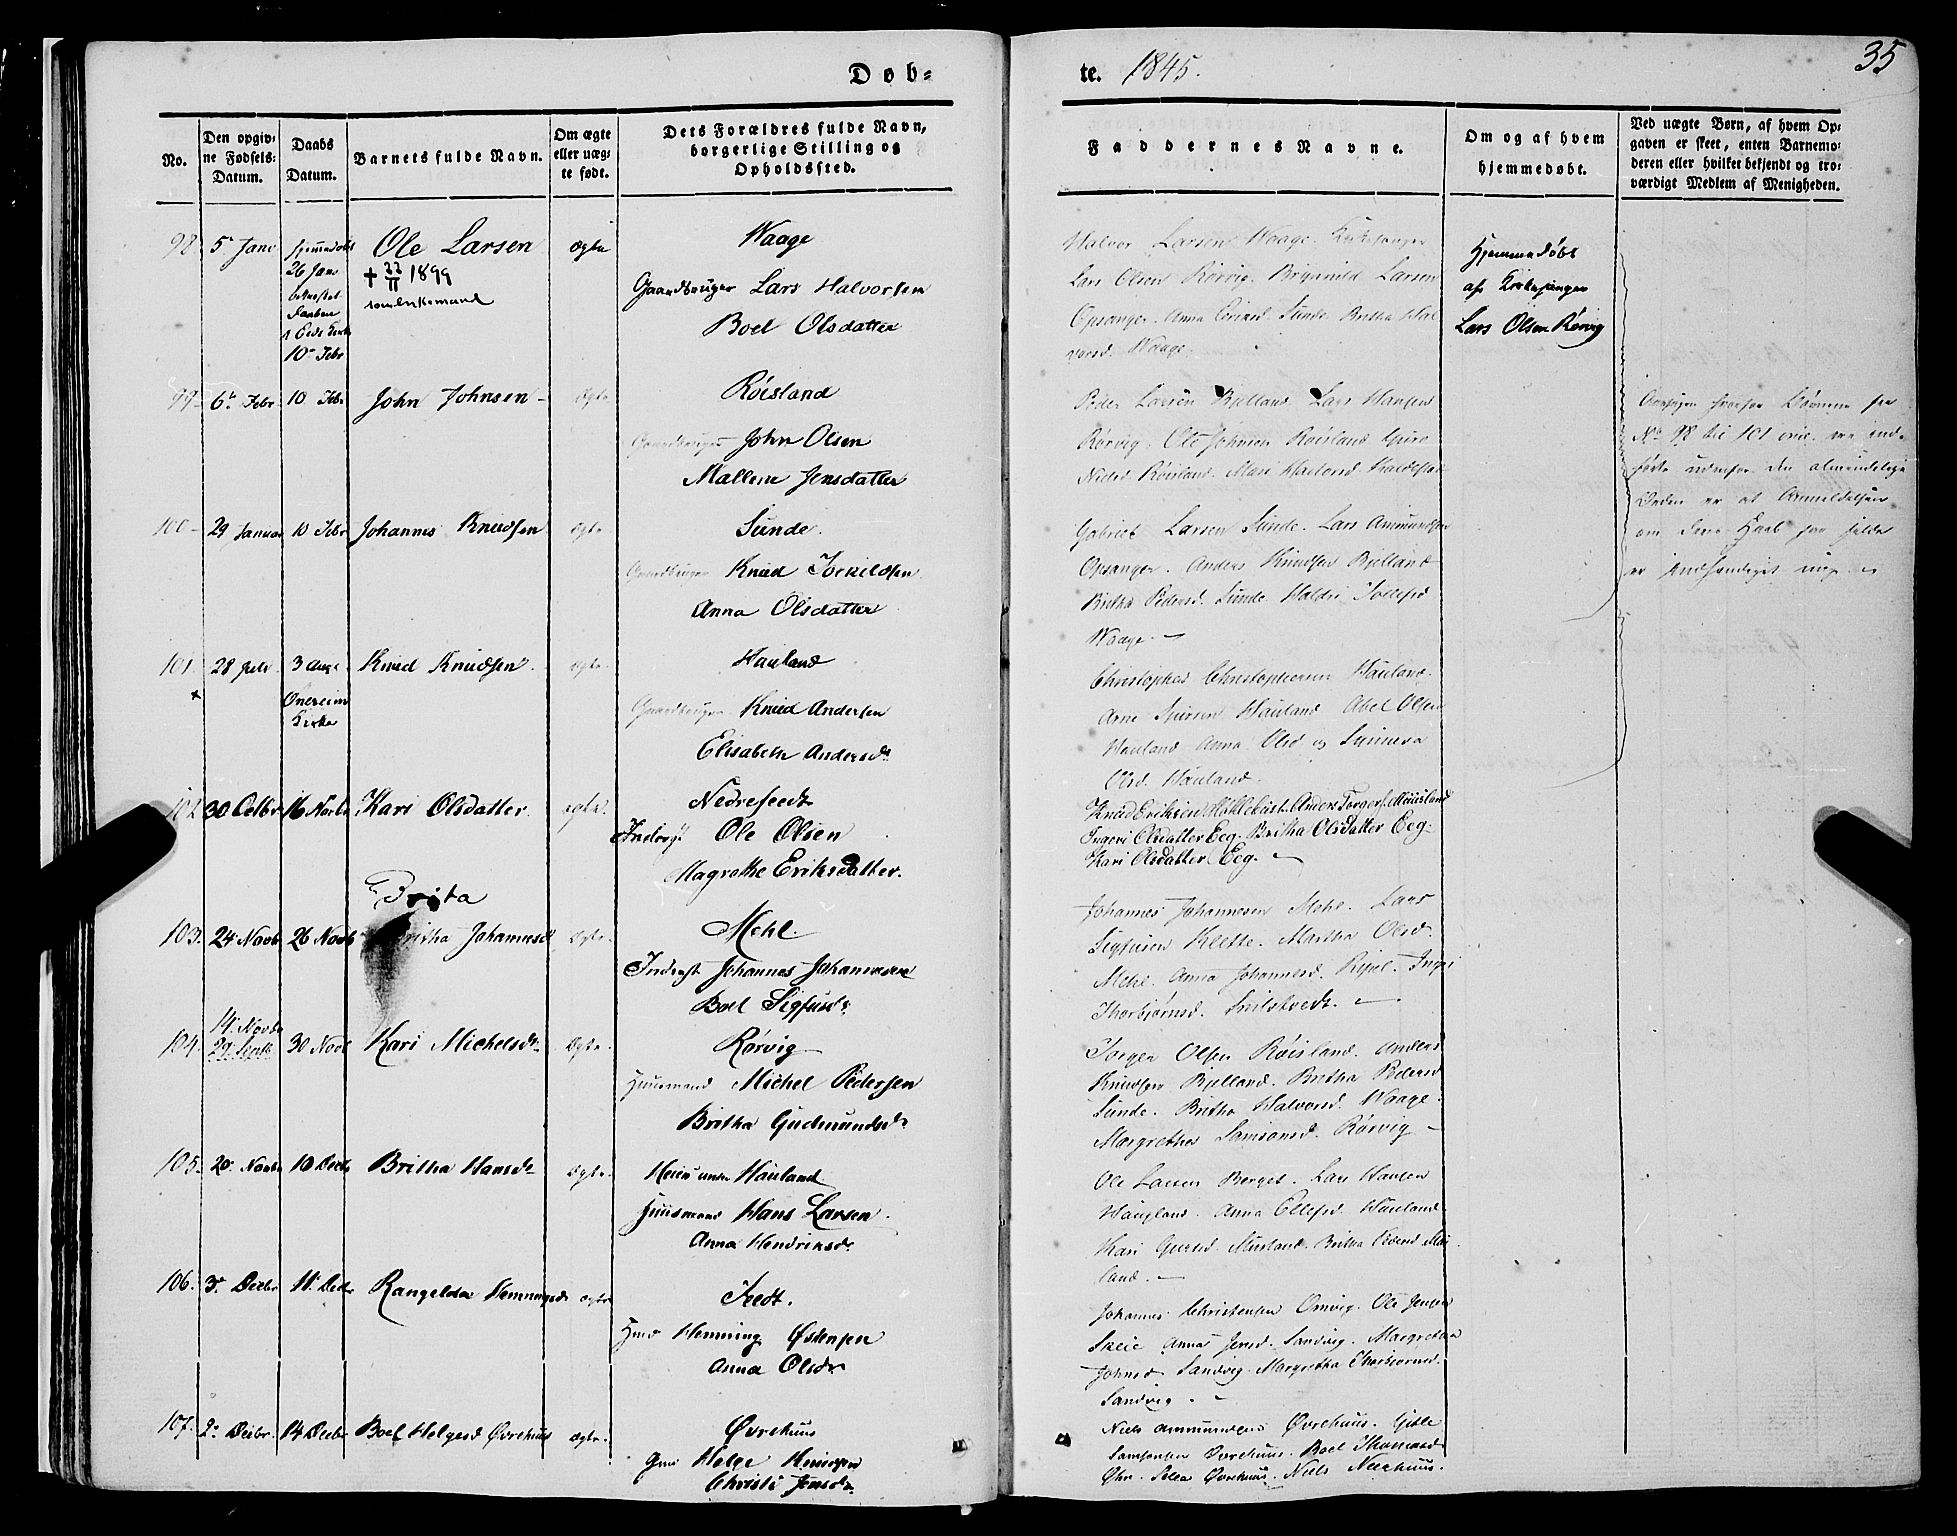 Døb=
te. 1845.
35
No.
Den opgiv=
ne Fødsels=
Datum.
Daabs
Datum.
Barnets fulde Navn.
Om ægte
eller uæg=
te født.
Dets Forældres fulde Navn,
borgerlige Stilling og
Opholdssted.
Faddernes Navne.
Om og af hvem
hjemmedøbt.
Ved uægte Børn, af hvem Op=
gaven er skeet, enten Barnemo=
deren eller hvilket bekjendt og tro=
værdigt Medlem af Menigheden.
98. 5 Janr Ole Larsen ægte Waage
hjemmedøbt
26 Janr
Daaben
i Eids Kirke
10 Febr
+ 22/11 1899
Gaardbruger Lars Halvorsen
Boel Olsdatter
Halvor Larsen Waage. Kirkesanger
Lars Olsen Rørvig. Brynnild Larsen
Opsanger. Anna Sunde. Britha Hal
vorsd. Waage.
Hjemmedøbt
af Kirkesanger
Lars Olsen Rørvig
99. 6 Febr 10 Febr John Johnsen ægte Røisland
Gaardbruger John Olsen
Mallene Jensdatter
Peder Larsen Bjelland. Lars Hansen
Rørvig. Ole Johnsen Røisland. Guro
Nielsd Røisland. Mari
hvorfor Børnene fra
No 98 til 101 ere ind-
førte udenfor den almindelige
Orden er at Anmeldelsen
om deres Daab for silde
er
100. 29 Januar 10 Febr Johannes Knudsen ægte Sunde.
Gaardbruger Knud Torkildsen
Anna Olsdatter
Gabriel Larsen Sunde. Lars Ammundsen
Opsanger. Anders Knudsen Bjelland
Britha Pedersd. Sunde.
Waage.
101. 28 Juli 3 Aug. Knud Knudsen. ægte Hauland
Onereim
Kirke
Gaardbruger Knud Andersen
Elisabeth Andersd.
Christopher Christophersen Hauland.
Arne Hauland Abel Olsen
Hauland Anna Olsd og Sunneva
Olsd. Hauland.
102 30 Octbr 16 Novbr Kari Olsdatter. ægte. Nedrefeedt
Inderst Ole Olsen
Magrethe Eriksdatter.
Knud Eriksen Anders Torgers. Miusland
Ingeri Olsdatter Eeg. Britha Olsdatter Eeg.
Kari Olsdatter Eeg.
Brita
103. 24 Novb 26 Novb Britha Johannesd ægte Mehl.
Inderst Johannes Johannesen
Boel Sigfusd.
Johannes Johannesen Mehl. Lars
Sigfusen Klette. Martha Olsd.
Mehl. Anna Johannesd. Ripel. Ingri
Thorbjørnsd.
14. Novbr
104. 29. Septb 30 Novb Kari Michelsd. ægte. Rørvig
Huusmand Michel Pedersen
Britha Gudmundsd.
Torger Olsen Røisland. Anders
Knudsen Bjelland. Britha Pedersd
Sunde. Britha Halvorsd. Waage.
Margrethe Samsonsd. Rørvig
105. 20. Novbr 10 Decbr Britha Hansd. ægte. under Hauland
Huusmand Hans Larsen.
Anna Hendriksd.
Ole Larsen Berget. Lars Hansen
Haugland. Anna Ellefsd Hauland
Kari Miusland. Britha
land.
106. 3. Decbr 11 Decbr Rangelda Hemmingsd ægte Feedt.
Hmd Hemming Østensen
Anna Olsd.
Johannes Christensen Omvig. Ole Jensen
Skeie Anna Jensd. Sandvig. Margretha
Johnsd Sandvig. Margretha Thorbjørnsd.
Sandvig.
107. 2. Decbr. 14 Decbr Boel Helgesd Øvrehuus ægte. Øvrehuus
Helge
Christi Jensd.
Niels Ammundsen Øvrehuus. Gitle
Samsonsen Øvrehuus. Boel Thomasd
Øvrehuus. Niels Nerhuus.